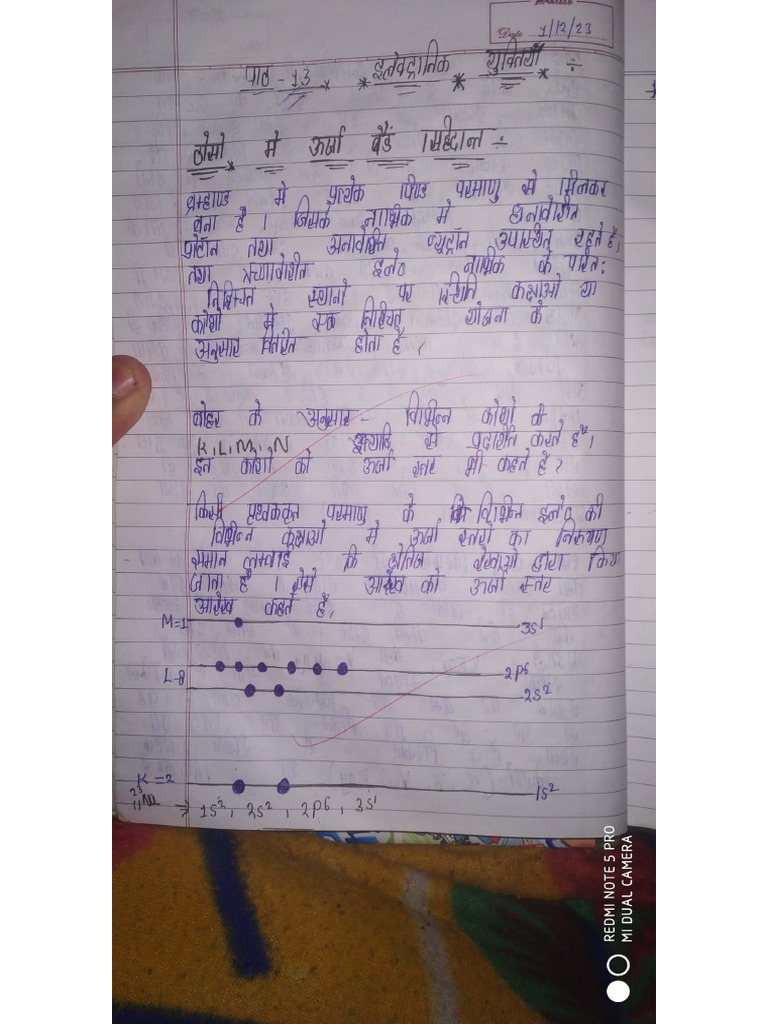 Date 1/12/23
पाठ - 13 * * इलेक्ट्रानिक * युक्तियाँ * ÷
ठोसो मे ऊर्जा बैंड सिद्धान्त ÷
ब्रम्हाण्ड मे प्रत्येक पिण्ड परमाणु से मिलकर
बना है । जिसके नाभिक मे धनावेशित
प्रोटॉन तथा अनावेशित न्यूट्रॉन उपस्थित रहते है,
तथा ऋणावेशित इले० नाभिक के परित:
निश्चित स्थानो पर स्थित कक्षाओ या
कोशो मे एक निश्चित योजना के
अनुसार वितरित होता है ,
बोहर के अनुसार - विभिन्न कोशो को
K, L, M, N इत्यादि से प्रदर्शित करते है ।
इन कोशो को ऊर्जा स्तर भी कहते है ?
किसी पृथककृत परमाणु के विभिन्न इले० की
विभिन्न कक्षाओ मे ऊर्जा स्तरो का निरूपण
समान लम्बाई कि क्षेतिज रेखाओ द्वारा किया
जाता है । ऐसे आरेख को ऊर्जा स्तर
आरेख कहते है,
M=1 3s¹
L-8 2p⁶
2s²
K=2 1s²
²³₁₁Na → 1s², 2s², 2p⁶, 3s¹
REDMI NOTE 5 PRO
MI DUAL CAMERA